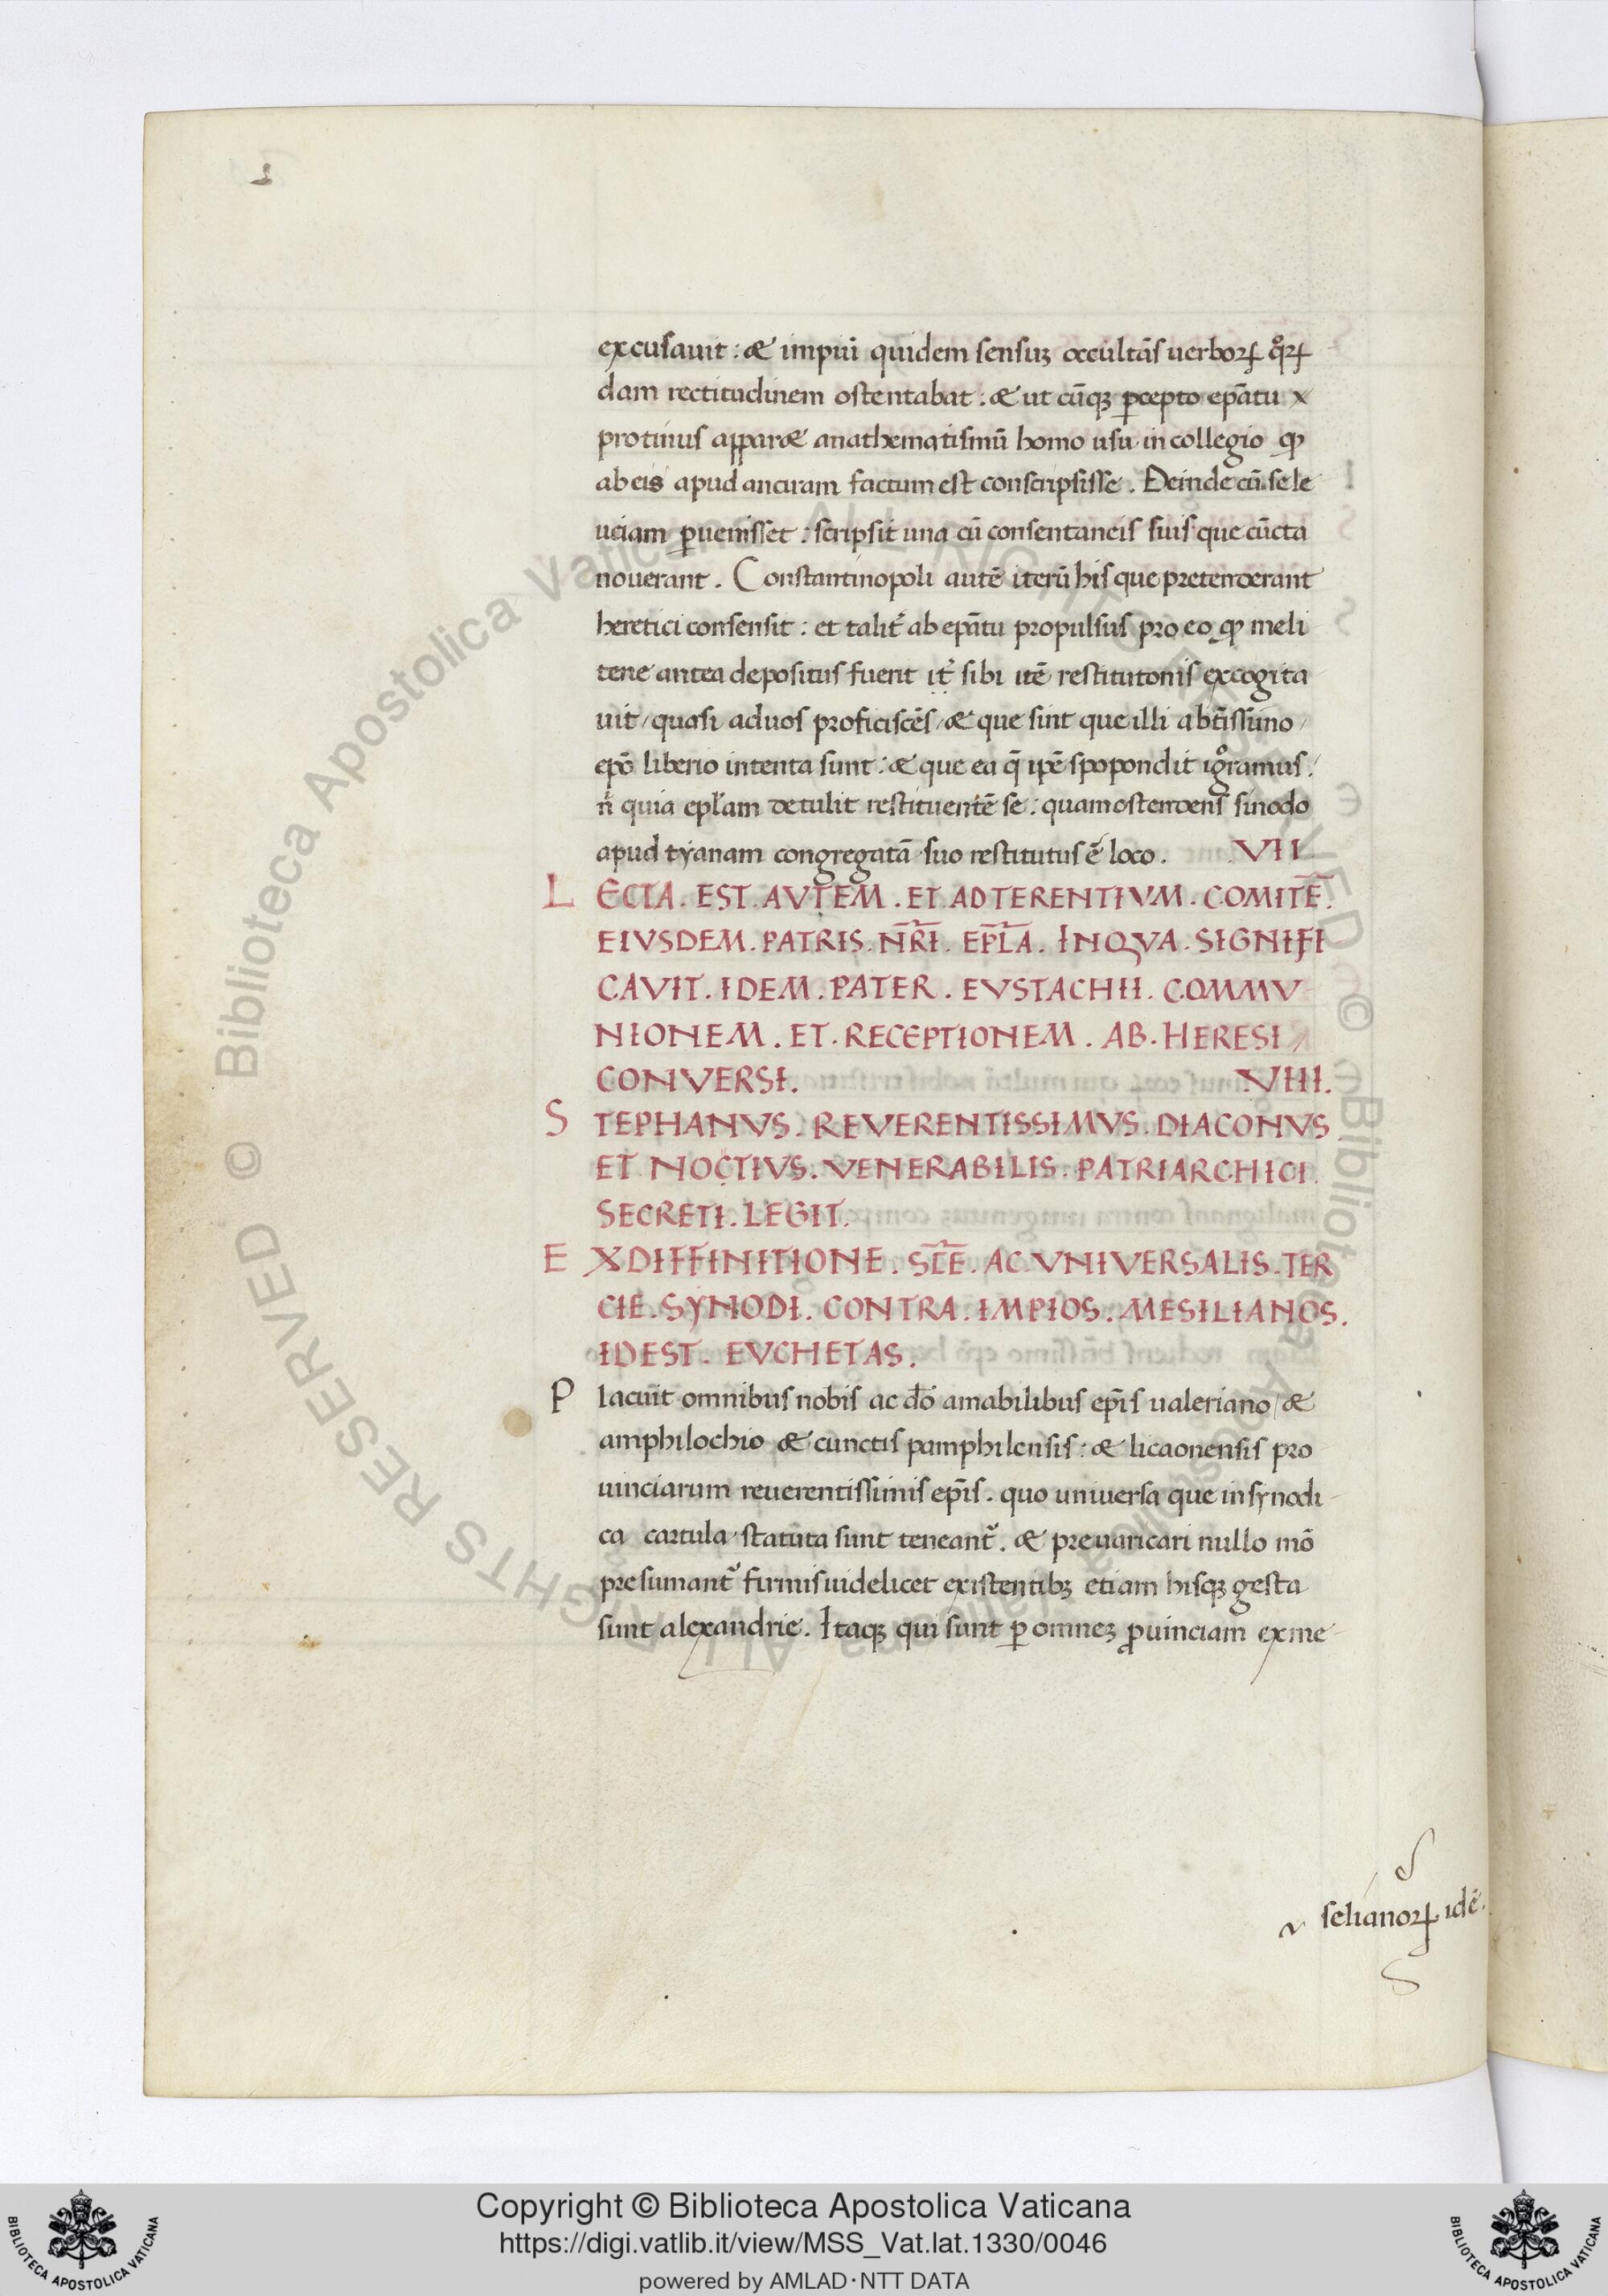 excusauit : & impiū quidem sensuꝫ occultās uerboꝝ q̊ꝝ
dam rectitudinem ostentabat . & ut cūqꝫ ꝑcepto ep̄atu x
protinus appar& anathematismū homo usu in collegio ꝙ
ab eis apud anciram factum est conscripsisse . Deinde cū sele
uciam ꝑuenisset : scripsit una cū consentaneis suis que cūcta
nouerant . Constantinopoli autē iterū his que pretenderant
heretici consensit : et talit̾ ab ep̄atu propulsus pro eo ꝙ meli
tene antea depositus fuerit it̾ sibi itē restitutonis excogita
uit / quasi ad uos proficiscēs / & que sint que illi a bt̄issimo /
ep̄o liberio intenta sunt : & que ea q̄ ip̄e spopondit igͦramus /
n̄ quia epl̄am detulit restituentē se : quam ostendens sinodo
apud tyanam congregatā suo restitutus ē loco . VII
L ECTA . EST . AVTEM . ET . AD TERENTIVM . COMITĒ .
EIVSDEM . PATRIS . NR̄I . EPL̄A . IN QVA . SIGNIFI
CAVIT . IDEM . PATER . EVSTACHII . COMMV
NIONEM . ET . RECEPTIONEM . AB . HERESI /
CONVERSI . VIII .
S TEPHANVS . REVERENTISSIMVS . DIACONVS
ET NOCTIVS . VENERABILIS . PATRIARCHICI .
SECRETI . LEGIT .
E X DIFFINITIONE . SC̄E . AC . VNIVERSALIS . TER
CIE . SYNODI . CONTRA . IMPIOS . MESILIANOS .
ID EST . EVCHETAS .
P lacuit omnibus nobis ac dō amabilibus ep̄is ualeriano / &
amphilochio & cunctis pamphilensis : & licaonensis pro
uinciarum reuerentissimis ep̄is . quo uniuersa que in synodi
ca cartula statuta sunt teneant᷑ . & preuaricari nullo mō
presumant᷑ firmis uidelicet existentibꝫ etiam hisqꝫ gesta
sunt alexandrie . Itaqꝫ qui sunt ꝑ omneꝫ ꝓuinciam ex me
selianoꝝ . idē .
Copyright © Biblioteca Apostolica Vaticana
https://digi.vatlib.it/view/MSS_Vat.lat.1330/0046
powered by AMLAD·NTT DATA
BIBLIOTECA APOSTOLICA VATICANA
BIBLIOTECA APOSTOLICA VATICANA
© Biblioteca Apostolica Vaticana ALL RIGHTS RESERVED